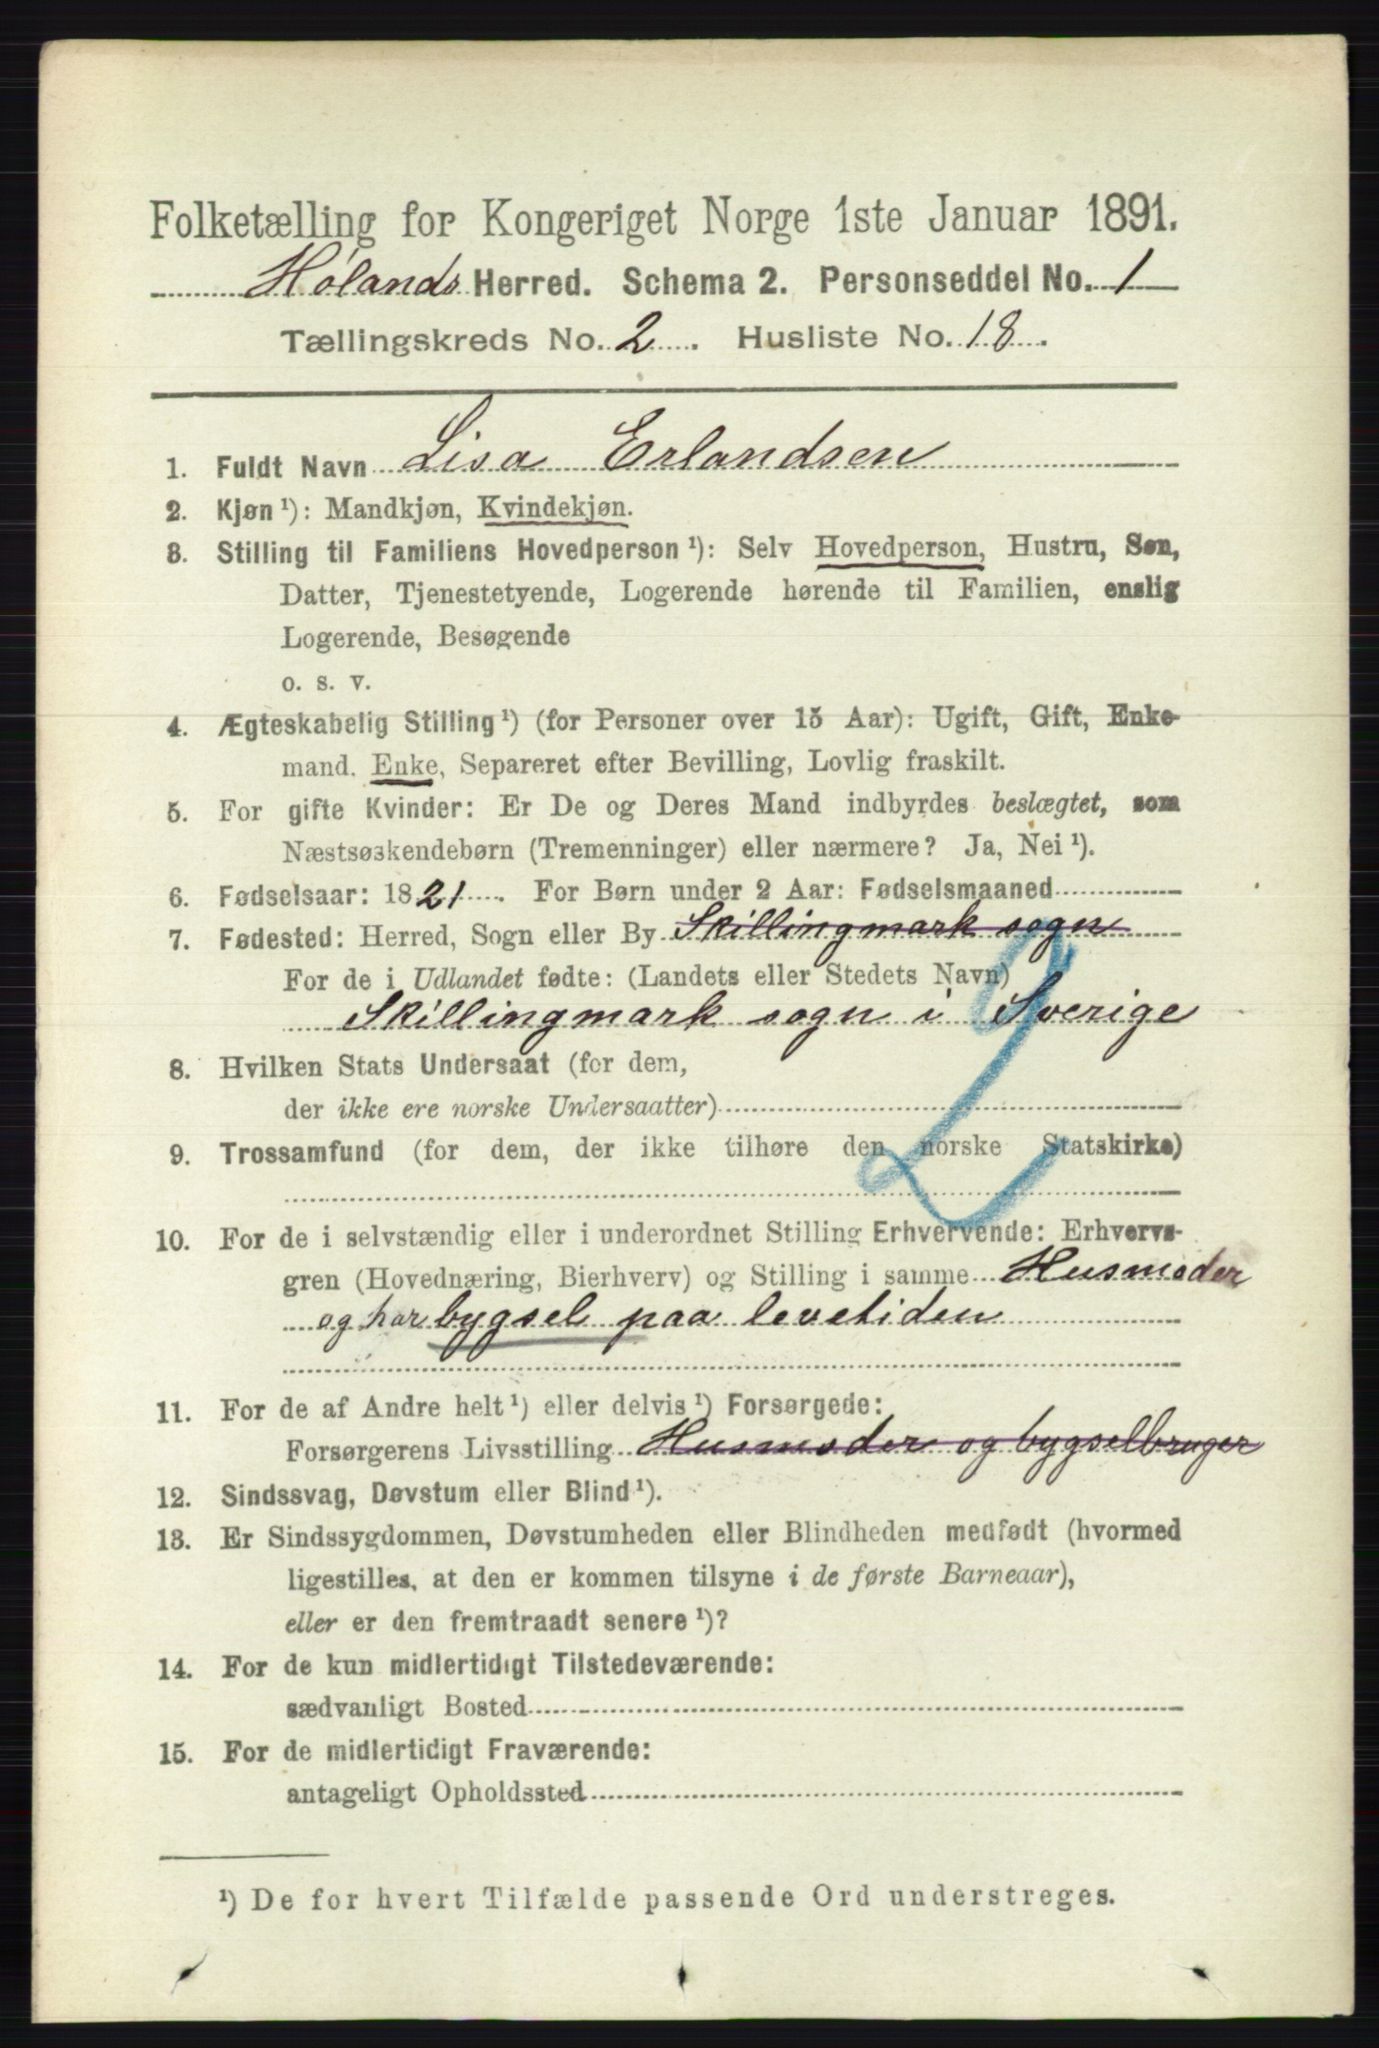 Folketælling for Kongeriget Norge 1ste Januar 1891.
Hølands Herred. Schema 2. Personseddel No. 1
Tællingskreds No. 2. Husliste No. 18.
1. Fuldt Navn Lisa Erlandsen
2. Kjøn¹): Mandkjøn, Kvindekjøn.
3. Stilling til Familiens Hovedperson¹): Selv Hovedperson, Hustru, Søn,
Datter, Tjenestetyende, Logerende hørende til Familien, enslig
Logerende, Besøgende
o. s. v.
4. Ægteskabelig Stilling¹) (for Personer over 15 Aar): Ugift, Gift, Enke-
mand, Enke, Separeret efter Bevilling, Lovlig fraskilt.
5. For gifte Kvinder: Er De og Deres Mand indbyrdes beslægtet, som
Næstsøskendebørn (Tremenninger) eller nærmere? Ja, Nei¹).
6. Fødselsaar: 1821. For Børn under 2 Aar: Fødselsmaaned
7. Fødested: Herred, Sogn eller By Skillingmark sogn
For de i Udlandet fødte: (Landets eller Stedets Navn)
Skillingmark sogn i Sverige
2
8. Hvilken Stats Undersaat (for dem,
der ikke ere norske Undersaatter)
9. Trossamfund (for dem, der ikke tilhøre den norske Statskirke)
10. For de i selvstændig eller i underordnet Stilling Erhvervende: Erhvervs-
gren (Hovednæring, Bierhverv) og Stilling i samme Husmoder
og har bygsel paa levetiden
11. For de af Andre helt¹) eller delvis¹) Forsørgede:
Forsørgerens Livsstilling Husmoder og bygselbruger
12. Sindssvag, Døvstum eller Blind¹).
13. Er Sindssygdommen, Døvstumheden eller Blindheden medfødt (hvormed
ligestilles, at den er kommen tilsyne i de første Barneaar),
eller er den fremtraadt senere¹)?
14. For de kun midlertidigt Tilstedeværende:
sædvanligt Bosted
15. For de midlertidigt Fraværende:
antageligt Opholdssted
¹) De for hvert Tilfælde passende Ord understreges.